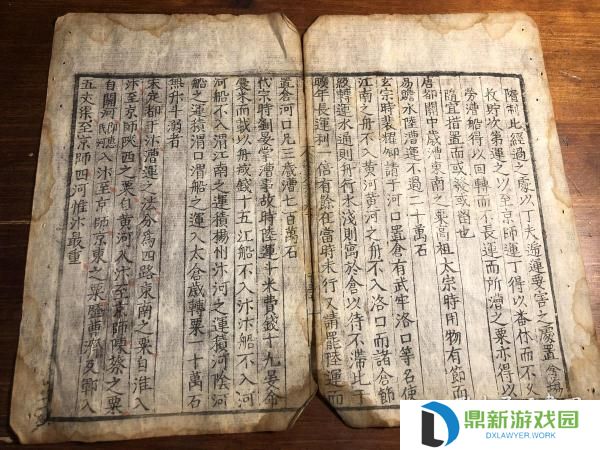 隋制此經過之處以丁夫遞運要害之處置倉場
收貯次第運之以至京師運丁得以番休而不久
勞漕船得以回轉而不長運而所漕之粟亦得以
隨宜措置而或發或留也
唐都關中歲漕東南之粟高祖太宗時用物有節而
易贍水陸漕運不過二十萬石
玄宗時裴耀卿請于河口置倉有武牢洛口等名使
江南之舟不入黃河黃河之舟不入洛口而諸倉節
級轉運水通則舟行水淺則寓於倉以待不滯此于
曠年長運利倍有餘在當時未行又請罷陸運而
置倉河口凡三歲漕七百萬石
代宗時劉晏掌漕事故時陸運斗米費錢十九晏命
囊米而載以舟減錢十五江船不入汴汴船不入河
河船不入渭江南之運積揚州汴河之運積河陰河
船之運積渭口渭船之運入太倉歲轉粟十萬石
無升斗溺者
宋定都于汴漕運之法分為四路東南之粟自淮入
汴至京師陝西之粟自黃河入汴至京師陳蔡之粟
自閔河即惠民河入汴至京師京東之粟歷曹濟及鄆入
五丈渠至京師四河惟汴最重
鼎新游戏园
DXLAWYER.WORK